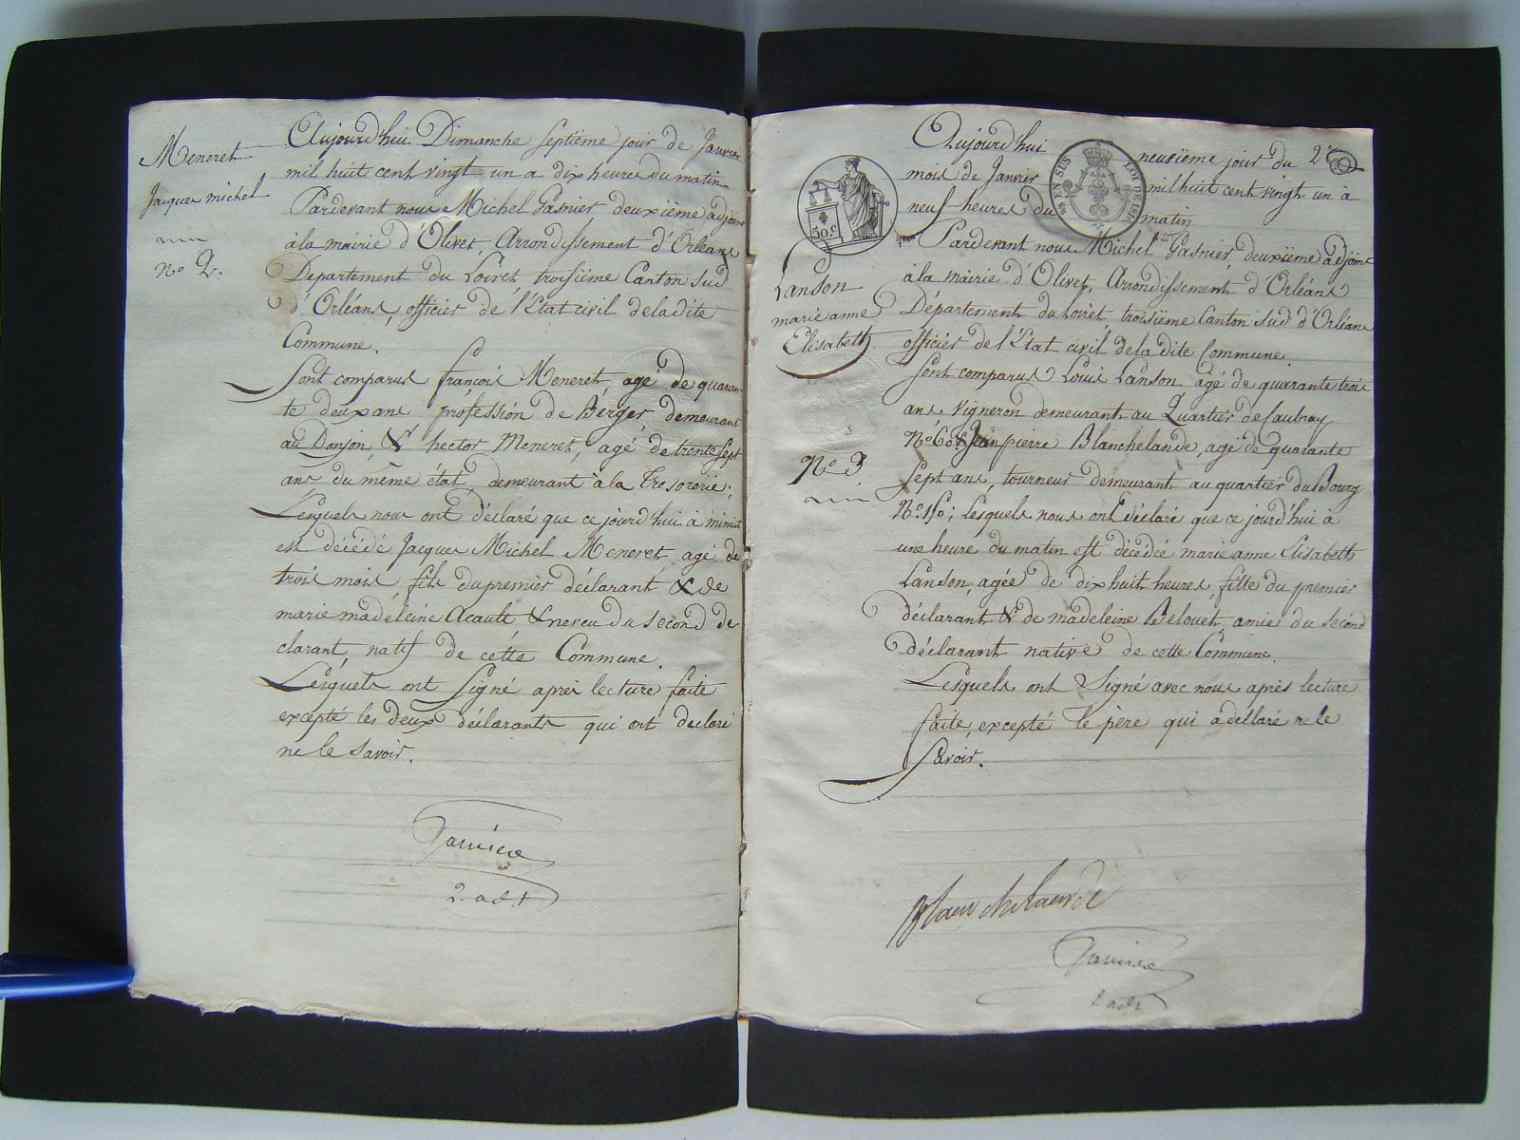 Meneret
Jacques michel
No 2.
Aujourd'hui Dimanche septieme jour de Janvier
mil huit cent vingt un a dix heures du matin
Pardevant nous Michel Gasnier deuxième adjoint
à la mairie d'Olivet, Arrondissement d'Orléans
Departement du Loiret troisiieme Canton sud
d'Orléans, officier de l'Etat civil de la dite
Commune.
Sont comparus francois Meneret, agé de quaran-
te deux ans profession de Berger, demeurant
au Donjon, & hector Meneret, agé de trente sept
ans du même état, demeurant à la Tresorerie;
Lesquels nous ont déclaré que ce jourd'hui à minuit
est décédé Jacques Michel Meneret, agé de
trois mois, fils du premier déclarant & de
marie madeleine Acault & neveu du second dé
clarant, natif de cette Commune.
Lesquels ont signé après lecture faite
excepté les deux déclarants qui ont declaré
ne le savoir.
Gasnier
2. adjt
50 c
EN SUS
2e
Lanson
marie anne
Elisabeth
No 3
Aujourd'hui neuvième jour du
mois de Janvier mil huit cent vingt un à
neuf heures du matin
Pardevant nous Michel Gasnier deuxième adjoint
à la mairie d'Olivet, Arrondissement d'Orléans
Département du Loiret, troisième Canton sud d'Orléans
officier de l'Etat civil de la dite Commune.
Sont comparus Louis Lanson agé de quarante trois
ans, vigneron demeurant au Quartier de Caubray
No 60 & Jean pierre Blanchelande, agé de quarante
sept ans, tourneur demeurant au quartier du Bourg
lesquels nous ont déclaré que ce jourd'hui à
une heure du matin est décédée marie anne Elisabeth
Lanson, agée de dix huit heures, fille du premier
déclarant & de madeleine Belouet, amie du second
déclarant native de cette Commune.
Lesquels ont signé avec nous après lecture
faite, excepté le père qui a déclaré ne le
savoir.
Blanchelande
Gasnier
2 adjt